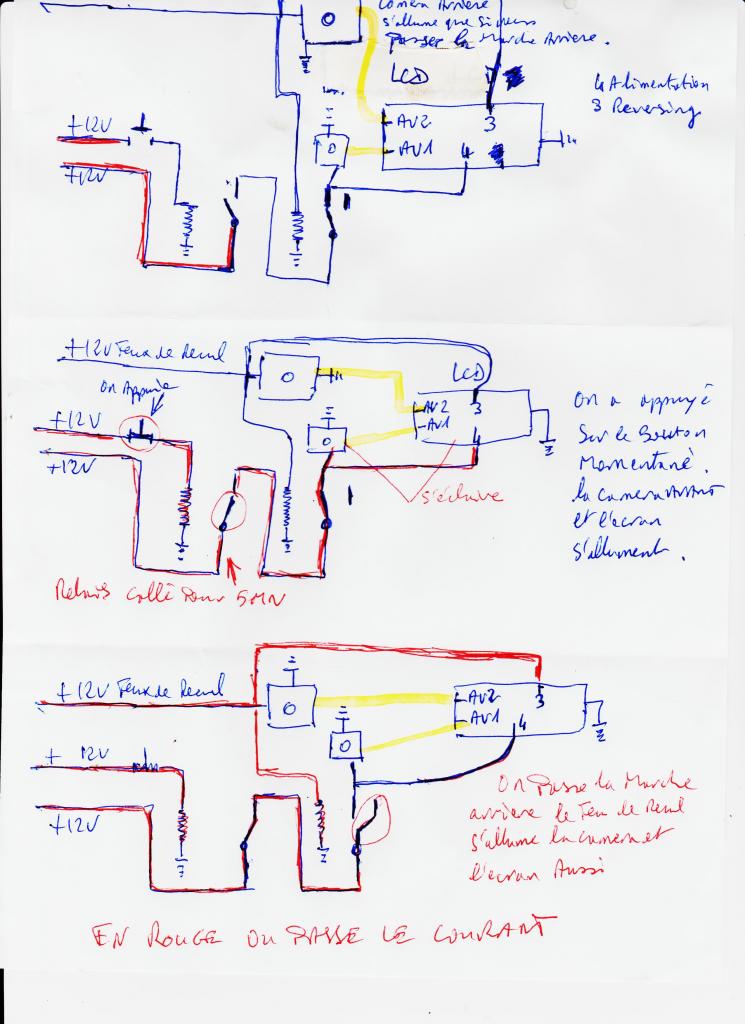 Camera Arriere
s'allume que si nous
Passer la Marche Arriere.
LCD
4 Alimentation
3 Reversing
+12V
AV2
3
AV1
4
+12V
+12V Feux de Recul
LCD
On Appuie
AV2
3
AV1
4
On a appuyé
Sur le Bouton
Momentané.
la camera Avant
et l'ecran
s'allument.
+12V
+12V
s'éclaire
Relais collé Pour 5MN
+12V Feux de Recul
AV2
3
AV1
4
+ 12V
+12V
On Passe la Marche
arriere le Feu de Recul
s'allume la camera et
l'ecran Aussi
EN ROUGE OU PASSE LE COURANT